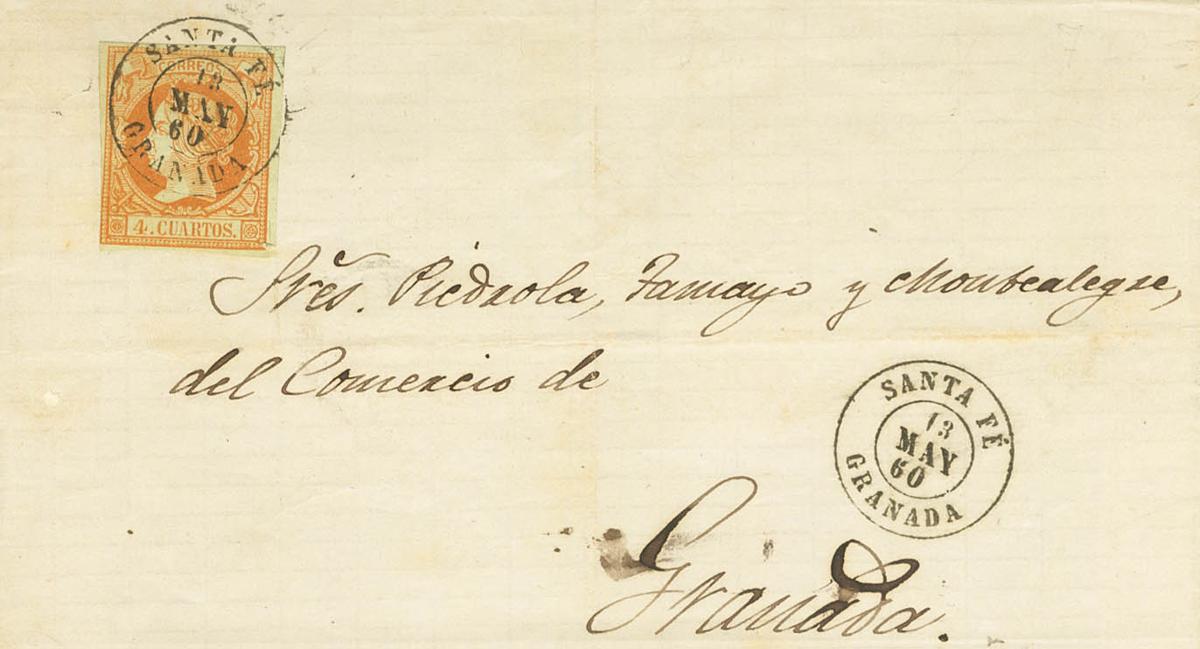 SANTA FÉ
13
MAY
60
GRANADA
CORREOS
4. CUARTOS.
Sres. Piédrola, Tamayo y Montealegre,
del Comercio de
Granada.
SANTA FÉ
13
MAY
60
GRANADA